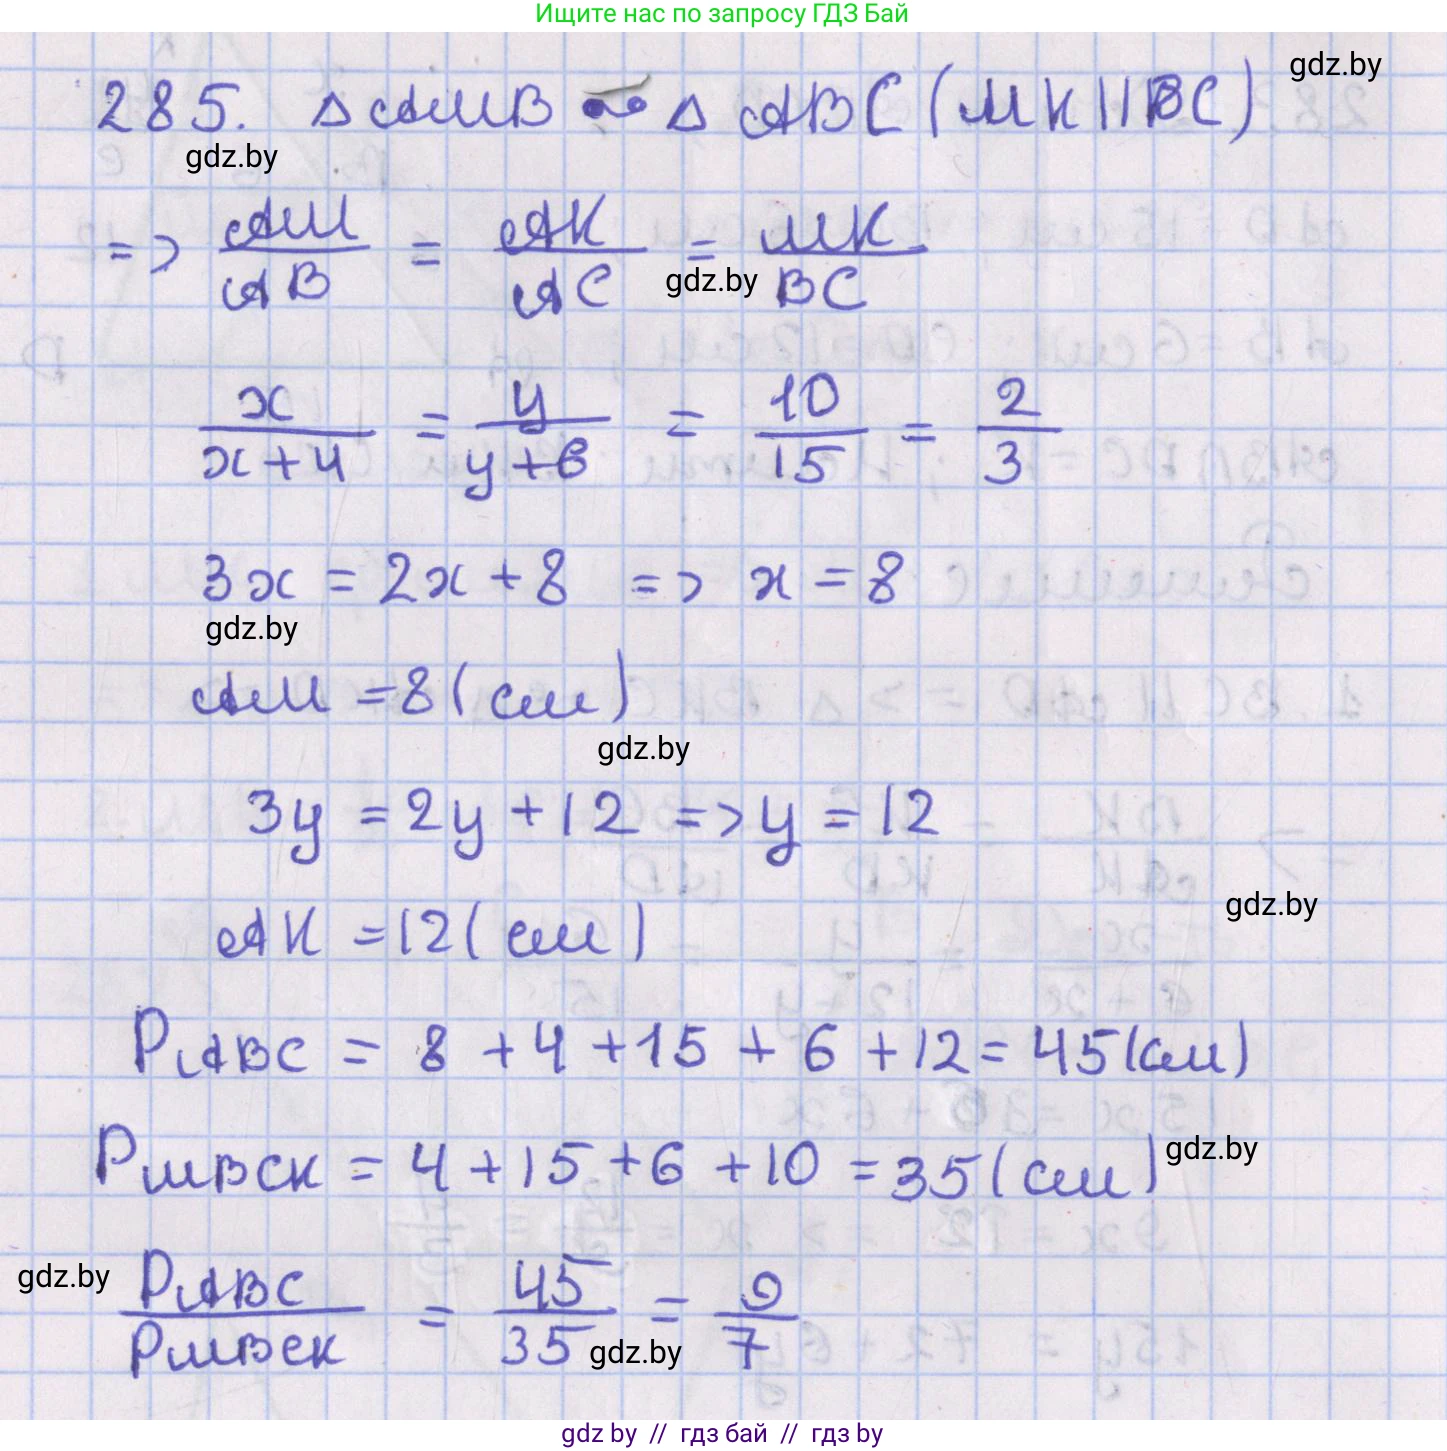 Ищите нас по запросу ГДЗ Бай
gdz.by
285. Δ AMB ~ Δ ABC (MK || BC)
gdz.by
=> AM/AB = AK/AC = MK/BC
gdz.by
x/(x+4) = y/(y+6) = 10/15 = 2/3
3x = 2x + 8 => x = 8
gdz.by
AM = 8 (см)
gdz.by
3y = 2y + 12 => y = 12
gdz.by
AK = 12 (см)
PABC = 8 + 4 + 15 + 6 + 12 = 45 (см)
PMBCK = 4 + 15 + 6 + 10 = 35 (см)
gdz.by
gdz.by
PABC/PMBCK = 45/35 = 9/7
gdz.by
gdz by // гдз бай // gdz by